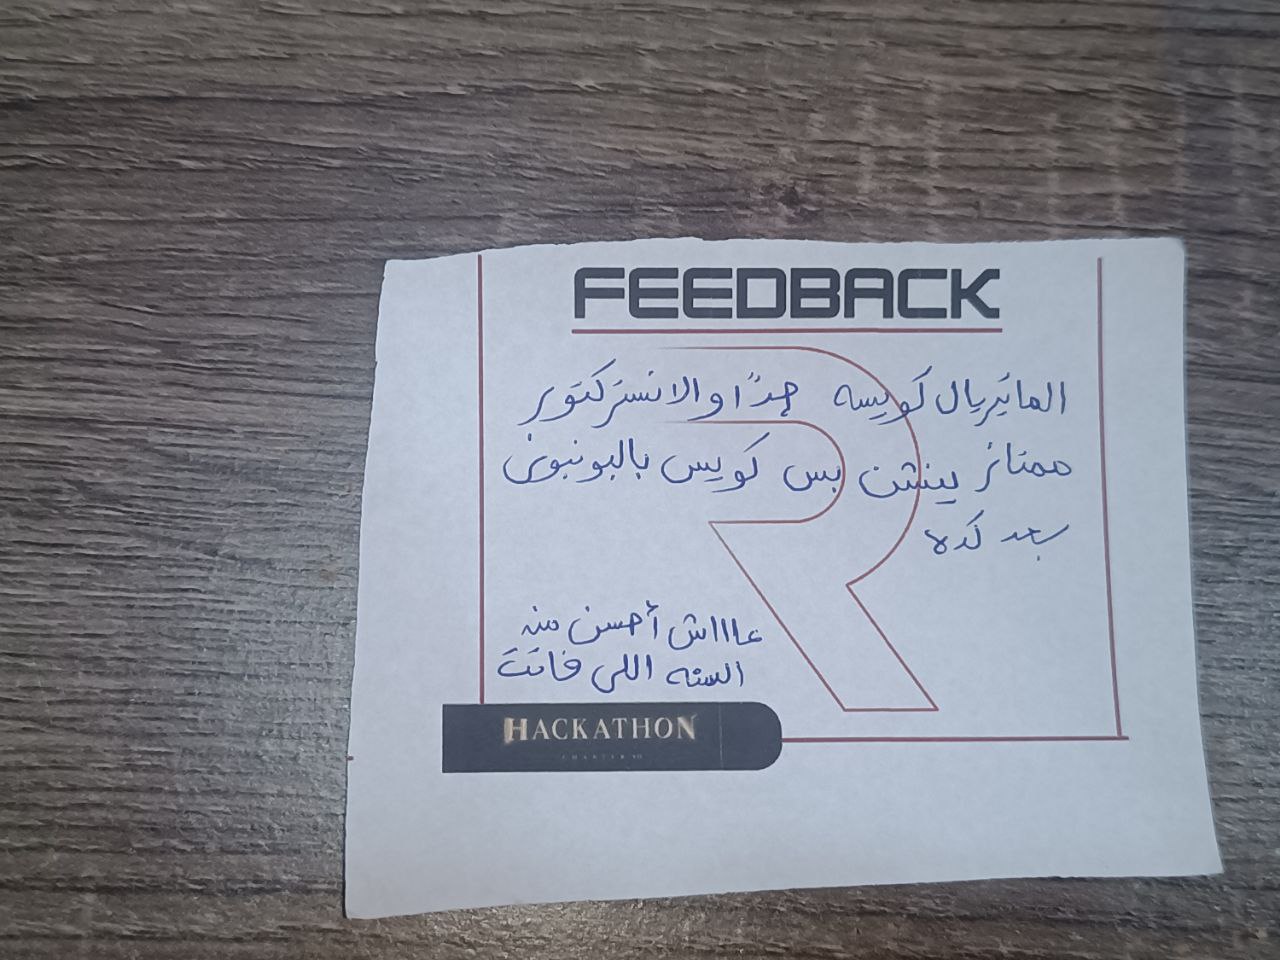 FEEDBACK
الماتيريال كويسه جدًا والانستركتور
ممتاز ينشن بس كويس بالبونبون
بعد كده
عاااش أحسن منه
السنه اللي فاتت
HACKATHON